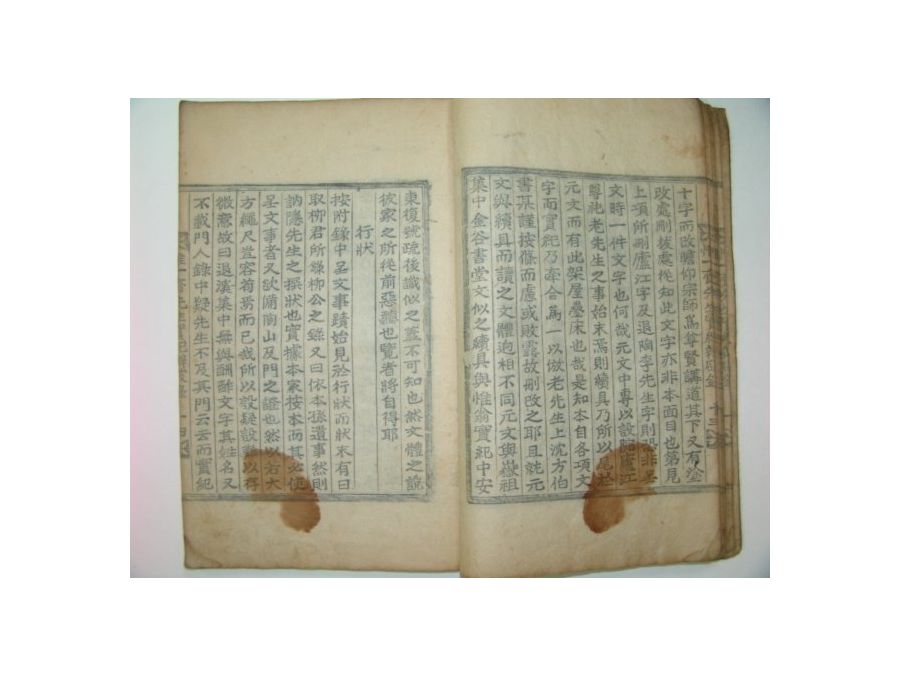 十字而改瞻仰宗師爲尊賢講道其下又有塗
改處刪拔從知此文字亦非本面目也第見
上項所刪廬江字及退陶李先生字則
文時一件文字也何哉元文中專以設廬江
尊祀老先生之事始末焉則續具乃所以
元文而有此架屋疊床也哉是知本自各項文
字而實紀乃牽合爲一以倣老先生上沈方伯
書某謹按條而慮或敗露故刪改之耶且就元
文與續具而讀之文體逈相不同元文與嶽祖
集中金谷書堂文似之續具與惟翁實紀中安
東復號疏後識似之蓋不可知也然文體之說
彼家之所從前惡聽也覽者將自得耶
行狀
按附錄中呈文事蹟始見於行狀而狀末有曰
取柳君所錄柳公之錄又曰依本孫遺事然則
訥隱先生之撰狀也實據本家按本而其必使
呈文事者又欲備陶山及門之證也然以若大
方繩尺豈容苟焉而已哉所以設疑設
微意故曰退溪集中無與酬酢文字其姓名又
不載門人錄中疑先生不及其門云云而實紀